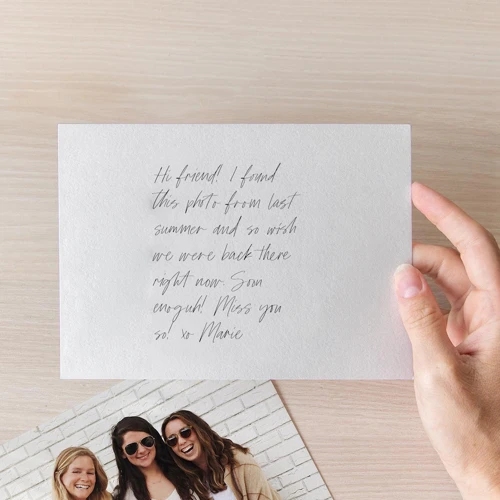 Hi friend! I found
this photo from last
summer and so wish
we were back there
right now. Soon
enoguh! Miss you
so! xo Marie